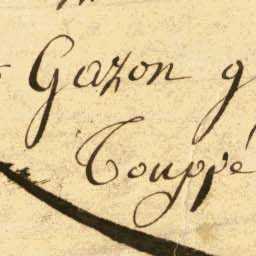 Gazon g
Touppé